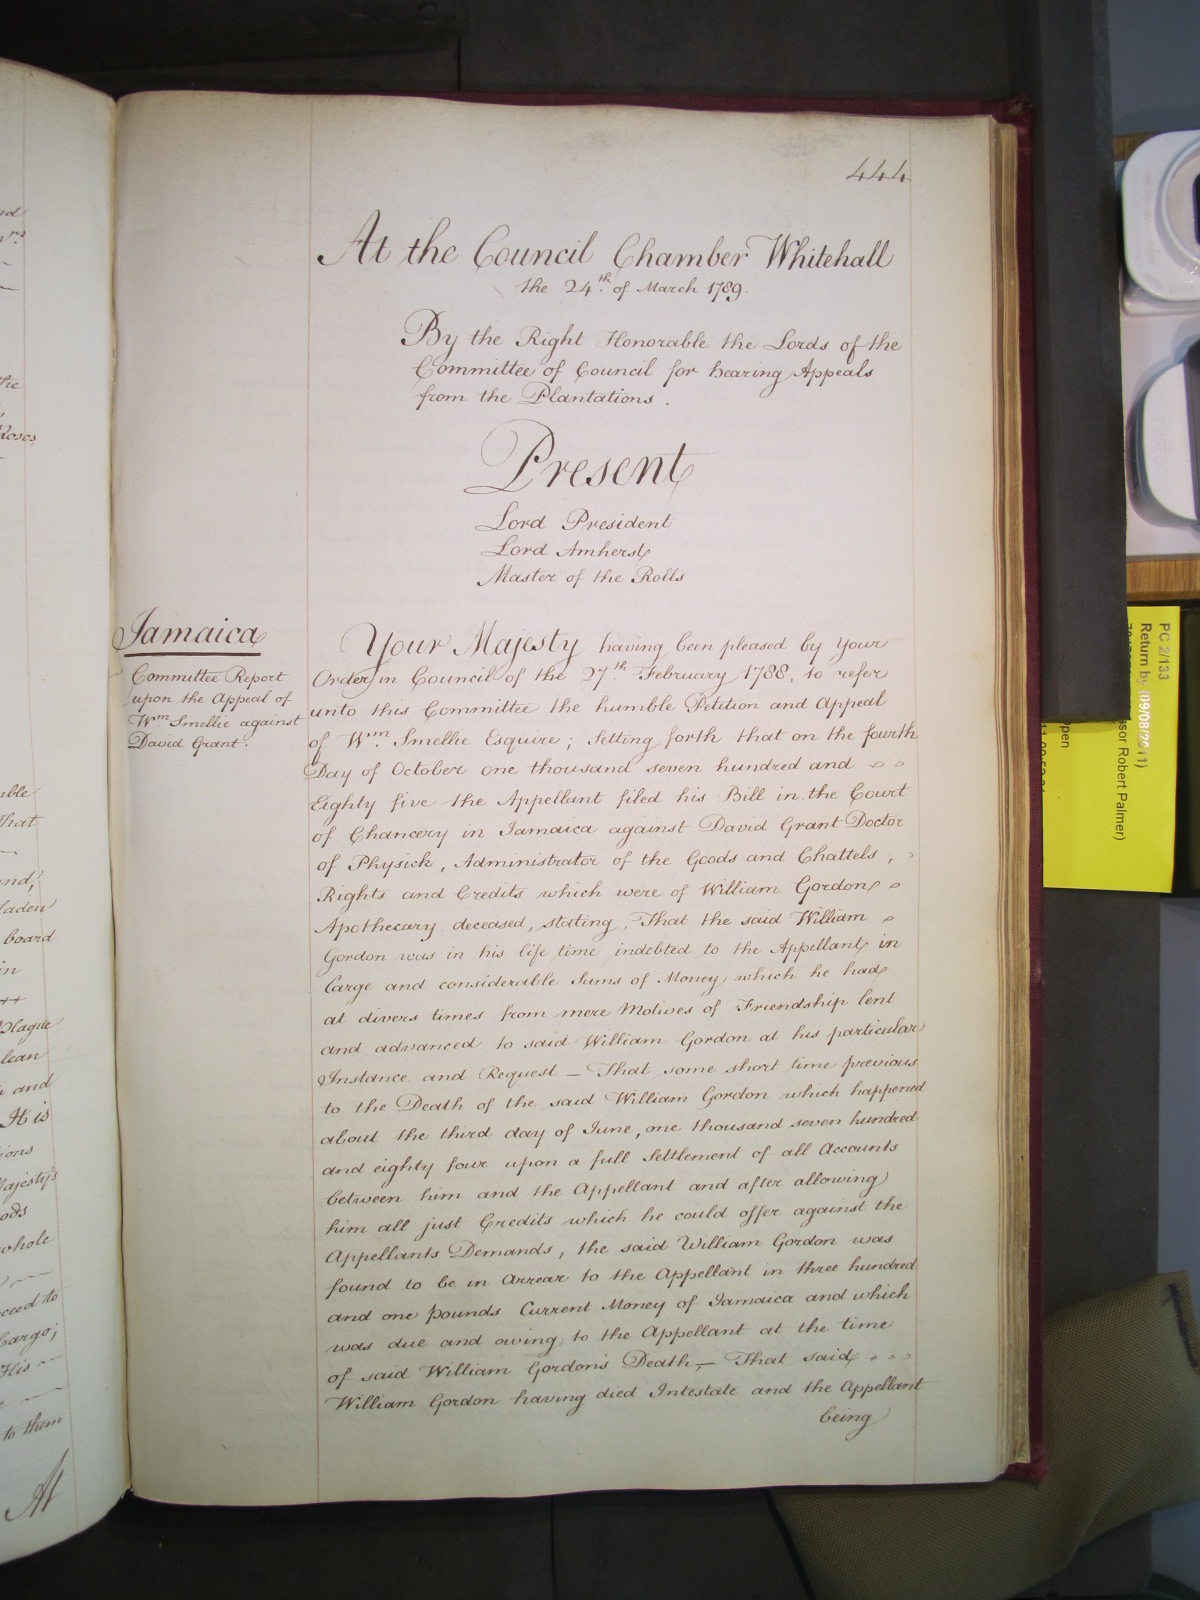 444
At the Council Chamber Whitehall
the 24th. of March 1789.
By the Right Honorable the Lords of the
Committee of Council for hearing Appeals
from the Plantations.
Present
Lord President
Lord Amherst
Master of the Rolls
Jamaica
Committee Report
upon the Appeal of
Wm Smellie against
David Grant.
Your Majesty having been pleased by Your
Order in Council of the 27th. February 1788, to refer
unto this Committee the humble Petition and Appeal
of Wm. Smellie Esquire; Setting forth that on the fourth
Day of October one thousand seven hundred and
Eighty five the Appellant filed his Bill in the Court
of Chancery in Jamaica against David Grant Doctor
of Physick, Administrator of the Goods and Chattels,
Rights and Credits which were of William Gordon
Apothecary deceased, stating, That the said William
Gordon was in his life time indebted to the Appellant in
large and considerable Sums of Money which he had
at divers times from mere Motives of Friendship lent
and advanced to said William Gordon at his particular
Instance and Request — That some short time previous
to the Death of the said William Gordon which happened
about the third day of June, one thousand seven hundred
and eighty four upon a full Settlement of all Accounts
between him and the Appellant and after allowing
him all just Credits which he could offer against the
Appellants Demands, the said William Gordon was
found to be in Arrear to the Appellant in three hundred
and one pounds Current Money of Jamaica and which
was due and owing to the Appellant at the time
of said William Gordon's Death, — That said
William Gordon having died Intestate and the Appellant
being
nd
the
Roses
mble
That
and,
laden
board
in
Hague
lean
and
It is
ions
Majesty's
ods
whole
ceed to
Cargo;
His
to them
At
PC 2/133
Return by (09/08/2011)
ssor Robert Palmer)
pen